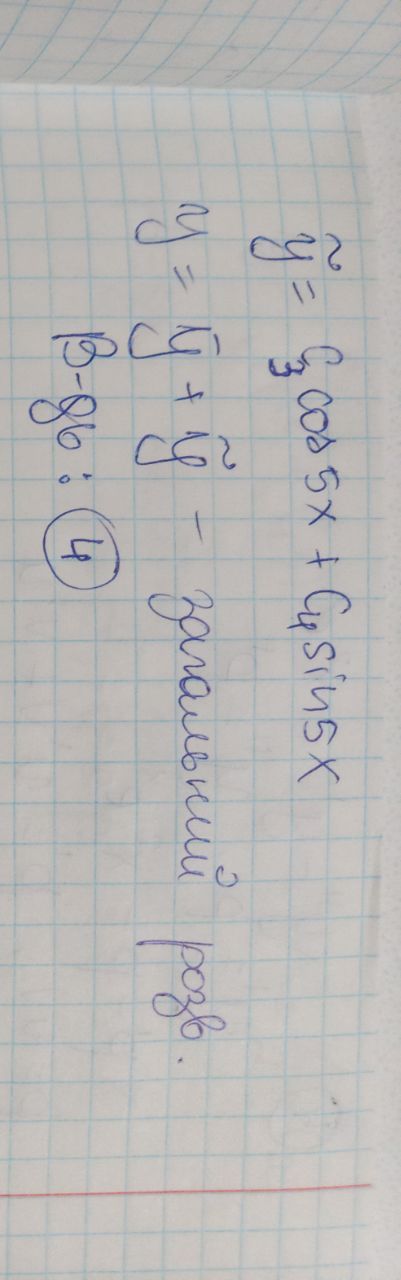 ỹ = C₃ cos 5x + C₄ sin 5x
y = ȳ + ỹ - загальний розв.
В-дь: 4